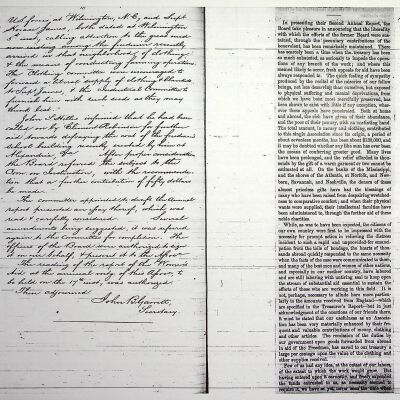 Ust. forces at Wilmington, N.C. and Supt
Horace James, both dated at Wilmington
5" inst. calling attention to the great need
now existing among the freedmen recently
arrived in that neighborhood, of clothing
& the means of conducting farming operation.
The Clothing Committee were encouraged to
forward a liberal supply of clothing & blankets
to Supt. James, & the Industrial Committee to
furnish him with such seeds as they may
think best.
John S. Hilles informs that he had been
called on by Clement Robinson for further
aid towards defraying the cost of the freedmen's
school building recently erected by him in
Alexandria, Va. After proper consideration
the Board referred the subject to the
Com. on Instruction, with the recommenda-
tion that a further instalment of fifty dollars
be made.
The committee appointed to draft the annual
report presented an essay thereof, which was
read & carefully considered. Several
amendments being suggested, it was referred
again to the Committee for completion. The
officers of the Board were authorized to sign
it on our behalf, & present it to the Asso.
The reading of the report of the Women's
Aid at the annual mtg. of this Asso., to
be held on the 17" inst., was authorized.
Then adjourned.
John B. Garrett,
Secretary.
In presenting their Second Annual Report, the
Board take pleasure in announcing that the liberality
with which the efforts of the former Board were sus-
tained, through the pecuniary contributions of the
benevolent, has been remarkably maintained. There
has scarcely been a time when the treasury has been
so much exhausted, as seriously to impede the opera-
tions of any branch of the work; and where this
seemed likely to occur, fresh appeals for aid have been
always responded to. The quick feeling of sympathy
produced by the recital of the sufferings of our fellow
beings, and not less deserving than ourselves, but exposed
to physical suffering and mental depravations, from
which we have been most mercifully preserved, has
been shown to exist with little if any exception, when-
ever these appeals have penetrated. Both at home
and abroad, the rich have given of their abundance,
and the poor of their penury, with an unsparing hand.
The total amount, in money and clothing, contributed
to this single Association since its origin, a period of
about seventeen months, has been about $250,000, and
it may be doubted whether any like sum has ever been
the means of conferring greater good. Many lives
have been prolonged, and the relief afforded to thou-
sands by the gift of a warm garment or two cannot be
estimated at all. On the banks of the Mississippi,
and the shores of the Atlantic, at Norfolk, and New-
bern, Savannah, and Nashville, the donors of these
priceless gifts have had the blessings of
many who have been raised from despairing wretched-
ness to comparative comfort; and when their physical
wants were supplied, their intellectual faculties have
been administered to, through the further aid of these
noble charities.
While, as was to have been expected, the citizens of
our own country were first to be impressed with the
necessity for prompt action in relieving the distress
incident to such a rapid and unprovided-for emanci-
pation from the toils of bondage, the hearts of thou-
sands abroad quickly responded to the same necessity
when the facts of the case were communicated to them,
and many of the best men and women of other nations,
and especially in our mother country, have labored
and are still laboring with untiring zeal to keep open
the stream of substantial aid essential to sustain the
efforts of those who are working in this field. It is
not, perhaps, necessary to allude here more particu-
larly to the amounts received from England—which
are specified in the Treasurer's Report—but in just
acknowledgment of the exertions of our friends there,
it must be stated that our usefulness as an Associa-
tion has been very materially enhanced by their fre-
quent and valuable contributions of money, clothing
and other articles. The remission of the duties by
our government upon goods forwarded from abroad
in aid of the Freedmen, has saved to our treasury a
large per centage upon the value of the clothing and
other supplies received.
Few of us had any idea, at the outset of our labors,
of the extent to which the work would grow. But
having entered upon it earnestly, and freely expended
the funds entrusted to us, as necessity seemed to
require it, we have as yet, never seen the time when